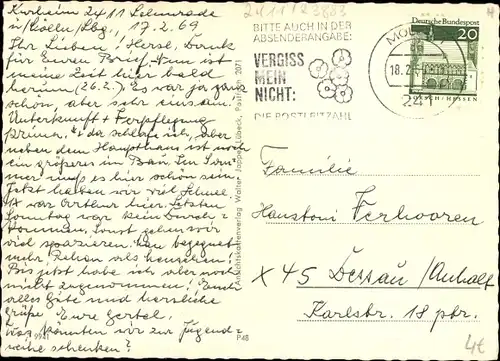 Kurheim 2411 Lehmrade
ü/Mölln/Lbg., 17.2.69
Ihr Lieben! Herzl. Dank
für Euren Brief. Nun ist
meine Zeit hier bald
herum (26.2.) Es war ja ganz
schön, aber sehr einsam.
Unterkunft + Verpflegung
prima. da schlafe ich, aber
neben dem Haupthaus ist noch
ein größeres im Bau. Im Som-
mer muß es hier schön sein.
Jetzt haben wir viel Schnee
war Arthur hier. Letzten
Sonntag war kein Durch-
kommen. Sonst gehen wir
viel spazieren. Man begegnet
mehr Rehen als Menschen!
Bis jetzt habe ich aber noch
nicht zugenommen! Euch
alles Gute und herzliche
Grüße Eure Gertel.
Was könnten wir zur Jugend-
weihe schenken?
2411/23803
BITTE AUCH IN DER
ABSENDERANGABE:
VERGISS
MEIN
NICHT:
DIE POSTLEITZAHL
18.2.
24
Deutsche Bundespost
20
LORSCH/HESSEN
Ansichtskartenverlag Walter Joppe, Lübeck, Postfach 2071
P48
Familie
Ferhooren
X 45 Dessau/Anhalt
Karlstr. 18 ptr.
4€